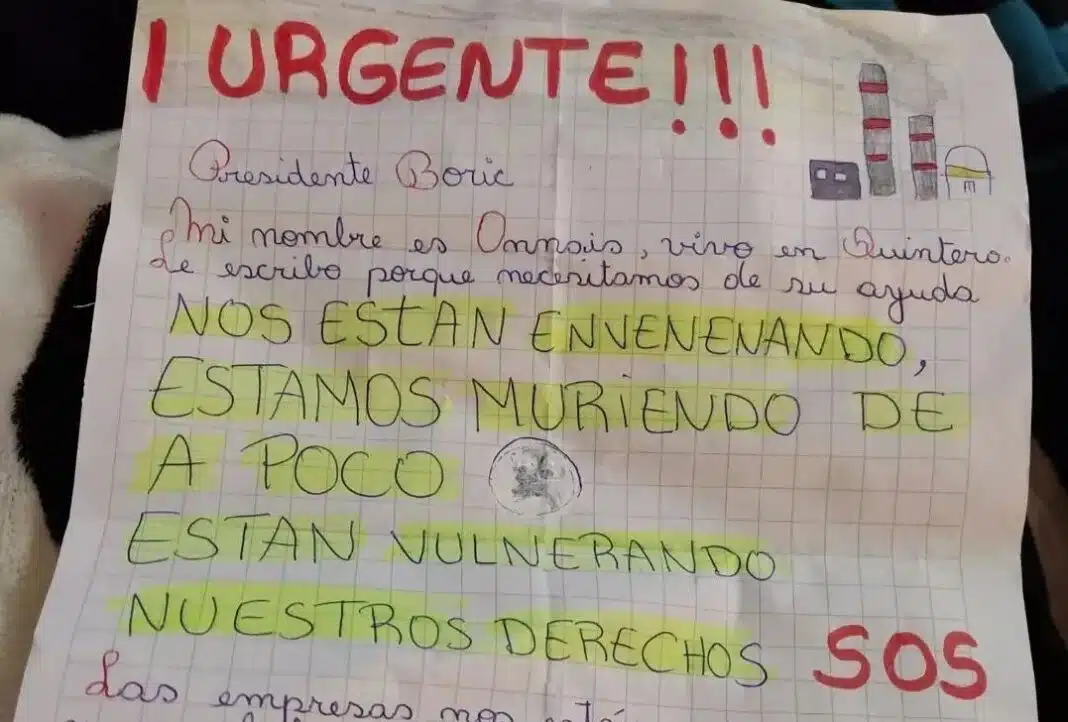 ¡ URGENTE!!!
Presidente Boric
Mi nombre es Onnais, vivo en Quintero.
Le escribo porque necesitamos de su ayuda
NOS ESTAN ENVENENANDO,
ESTAMOS MURIENDO DE
A POCO
ESTAN VULNERANDO
NUESTROS DERECHOS SOS
Las empresas nos